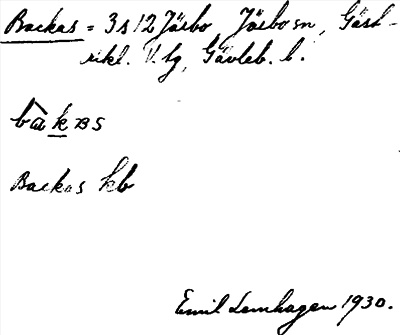 Backas = 3 s 12 Järbo Järbo sn, Gäst-
rikl. V. tg, Gävleb. l.
bàkas
Backas kb
Emil Lernhagen 1930.